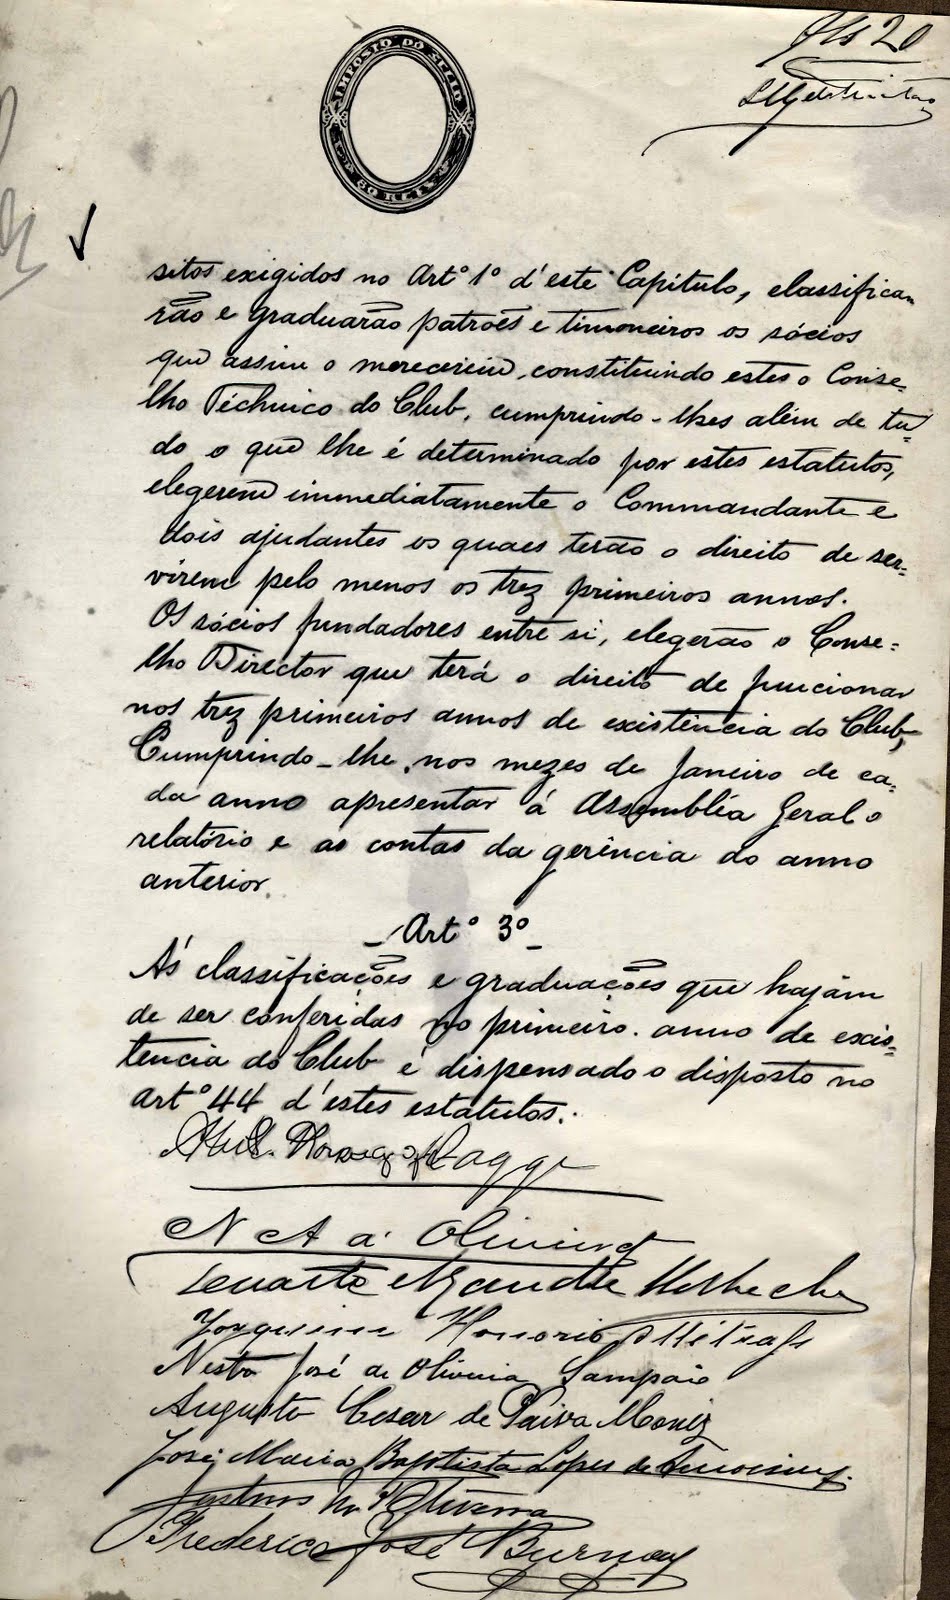 Fls 20
IMPOSTO DO SELLO
sitos exigidos no Artº 1º d'este Capitulo, classifica-
rão e graduarão patrões e timoneiros os sócios
que assim o merecerem, constituindo estes o Conse-
lho Téchnico do Club, cumprindo-lhes além de tu-
do o que lhe é determinado por estes estatutos,
elegerem immediatamente o Commandante e
dois ajudantes os quaes terão o direito de ser-
virem pelo menos os trez primeiros annos.
Os sócios fundadores entre si, elegerão o Conse-
lho Director que terá o direito de funcionar
nos trez primeiros annos de existência do Club,
Cumprindo-lhe, nos mezes de Janeiro de ca-
da anno apresentar á Assembléa Geral o
relatório e as contas da gerência do anno
anterior.
Artº 3º
Ás classificações e graduações que hajam
de ser conferidas no primeiro anno de exis-
tencia do Club é dispensado o disposto no
artº 44 d'estes estatutos.
Dagge
N A d' Oliveira
Duarte
Joaquim Honorio
Nestor José de Oliveira Sampaio
Augusto Cesar de Paiva Moniz
José Maria Baptista Lopes de
d'Oliveira
Frederico José Burnay